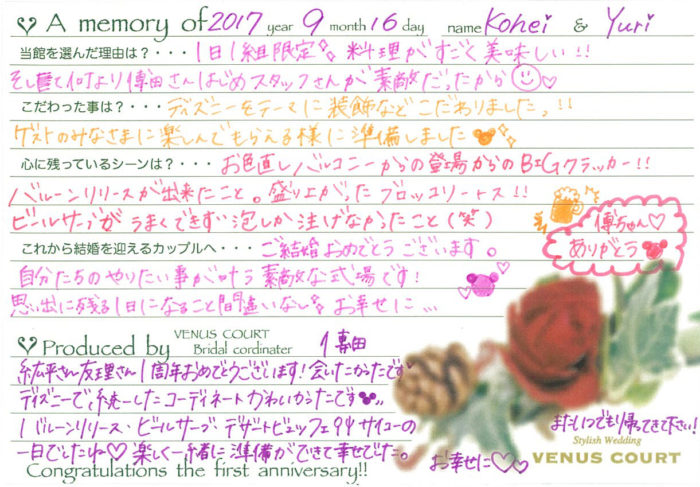 A memory of 2017 year 9 month 16 day name Kohei & Yuri
当館を選んだ理由は？・・・1日1組限定 料理がすごく美味しい!!
そして何より傳田さんはじめスタッフさんが素敵だったから
こだわった事は？・・・ディズニーをテーマに装飾などこだわりました!!
ゲストのみなさまに楽しんでもらえる様に準備しました
心に残っているシーンは？・・・お色直しバルコニーからの登場からのBIGクラッカー!!
バルーンリリースが出来たこと。盛り上がったブロッコリートス!!
ビールサーブがうまくできず泡しか注げなかったこと(笑)
傳ちゃん♡
ありがとう
これから結婚を迎えるカップルへ・・・ご結婚おめでとうございます。
自分たちのやりたい事が叶う素敵な式場です!
思い出に残る1日になること間違いない お幸せに…
Produced by VENUS COURT Bridal cordinater 傳田
紘平さん友理さん1周年おめでとうございます!会いたかったです
ディズニーで統一したコーディネートかわいかったです
バルーンリリース・ビールサーブ デザートビュッフェ サイコーの
一日でしたね♡楽しく一緒に準備ができて幸せでした。
お幸せに♡♡
またいつでも帰ってきて下さい!
Stylish Wedding
VENUS COURT
Congratulations the first anniversary!!